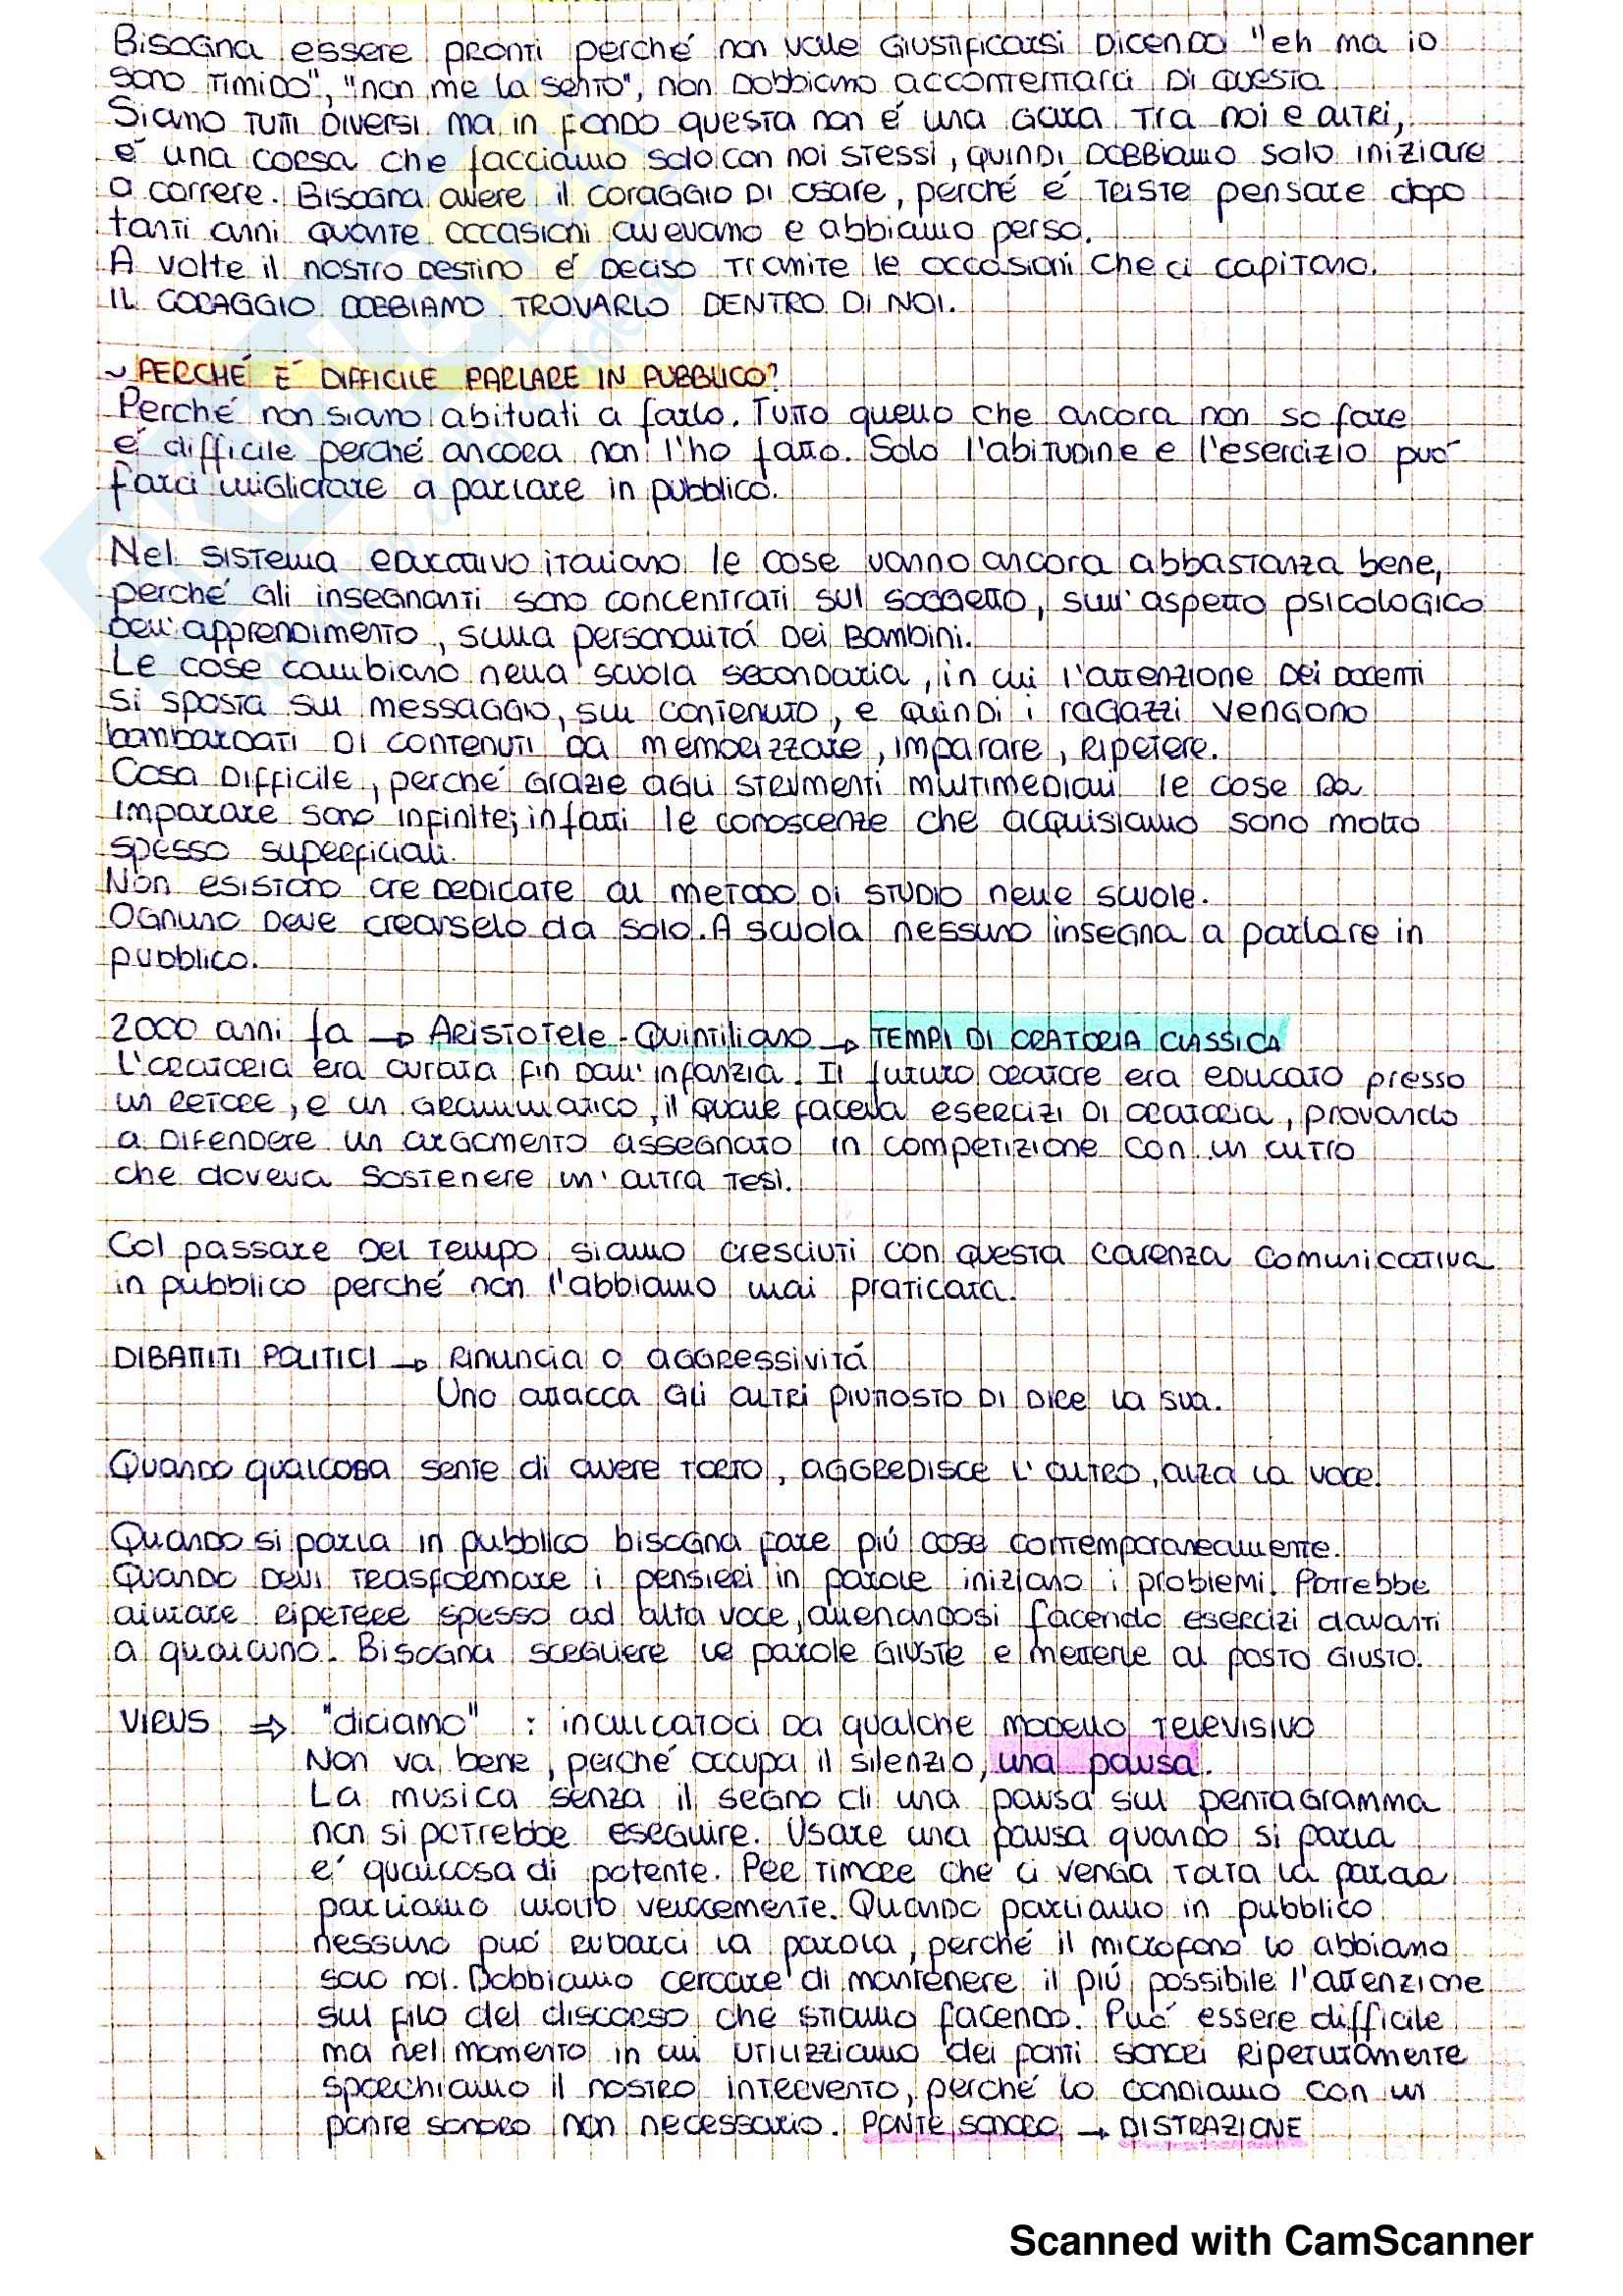 Bisogna essere pronti perché non vale giustificarsi dicendo "eh ma io
sono timido", "non me la sento", non dobbiamo accontentarci di questo
Siamo tutti diversi ma in fondo questa non é una gara tra noi e altri,
é una corsa che facciamo solo con noi stessi, quindi dobbiamo solo iniziare
a correre. Bisogna avere il coraggio di osare, perché é triste pensare dopo
tanti anni quante occasioni avevamo e abbiamo perso.
A volte il nostro destino é deciso tramite le occasioni che ci capitano.
IL CORAGGIO DOBBIAMO TROVARLO DENTRO DI NOI.
~ PERCHÉ É DIFFICILE PARLARE IN PUBBLICO?
Perché non siamo abituati a farlo. Tutto quello che ancora non so fare
é difficile perché ancora non l'ho fatto. Solo l'abitudine e l'esercizio puó
farci migliorare a parlare in pubblico.
Nel sistema educativo italiano le cose vanno ancora abbastanza bene,
perché gli insegnanti sono concentrati sul soggetto, sull'aspetto psicologico
dell'apprendimento, sulla personalitá dei bambini.
Le cose cambiano nella scuola secondaria, in cui l'attenzione dei docenti
si sposta sul messaggio, sul contenuto, e quindi i ragazzi vengono
bombardati di contenuti da memorizzare, imparare, ripetere.
Cosa difficile, perché grazie agli strumenti multimediali le cose da
imparare sono infinite; infatti le conoscenze che acquisiamo sono molto
spesso superficiali.
Non esistono ore dedicate al metodo di studio nelle scuole.
Ognuno deve crearselo da solo. A scuola nessuno insegna a parlare in
pubblico.
2000 anni fa → Aristotele - Quintiliano → TEMPI DI ORATORIA CLASSICA
L'oratoria era curata fin dall'infanzia. Il futuro oratore era educato presso
un retore, e un grammatico, il quale faceva esercizi di oratoria, provando
a difendere un argomento assegnato in competizione con un altro
che doveva sostenere un'altra tesi.
Col passare del tempo siamo cresciuti con questa carenza comunicativa
in pubblico perché non l'abbiamo mai praticata.
DIBATTITI POLITICI → Rinuncia o aggressivitá
Uno attacca gli altri piuttosto di dire la sua.
Quando qualcosa sente di avere torto, aggredisce l'altro, alza la voce.
Quando si parla in pubblico bisogna fare piú cose contemporaneamente.
Quando devi trasformare i pensieri in parole iniziano i problemi. Potrebbe
aiutare ripetere spesso ad alta voce, allenandosi facendo esercizi davanti
a qualcuno. Bisogna scegliere le parole giuste e metterle al posto giusto.
VIRUS ⇒ "diciamo" : inculcatoci da qualche modello televisivo
Non va bene, perché occupa il silenzio, una pausa.
La musica senza il segno di una pausa sul pentagramma
non si potrebbe eseguire. Usare una pausa quando si parla
é qualcosa di potente. Per timore che ci venga tolta la parola
parliamo molto velocemente. Quando parliamo in pubblico
nessuno puó rubarci la parola, perché il microfono lo abbiamo
solo noi. Dobbiamo cercare di mantenere il piú possibile l'attenzione
sul filo del discorso che stiamo facendo. Puó essere difficile
ma nel momento in cui utilizziamo dei ponti sonori ripetutamente
sporchiamo il nostro intervento, perché lo condiamo con un
ponte sonoro non necessario. PONTE SONORO → DISTRAZIONE
Scanned with CamScanner